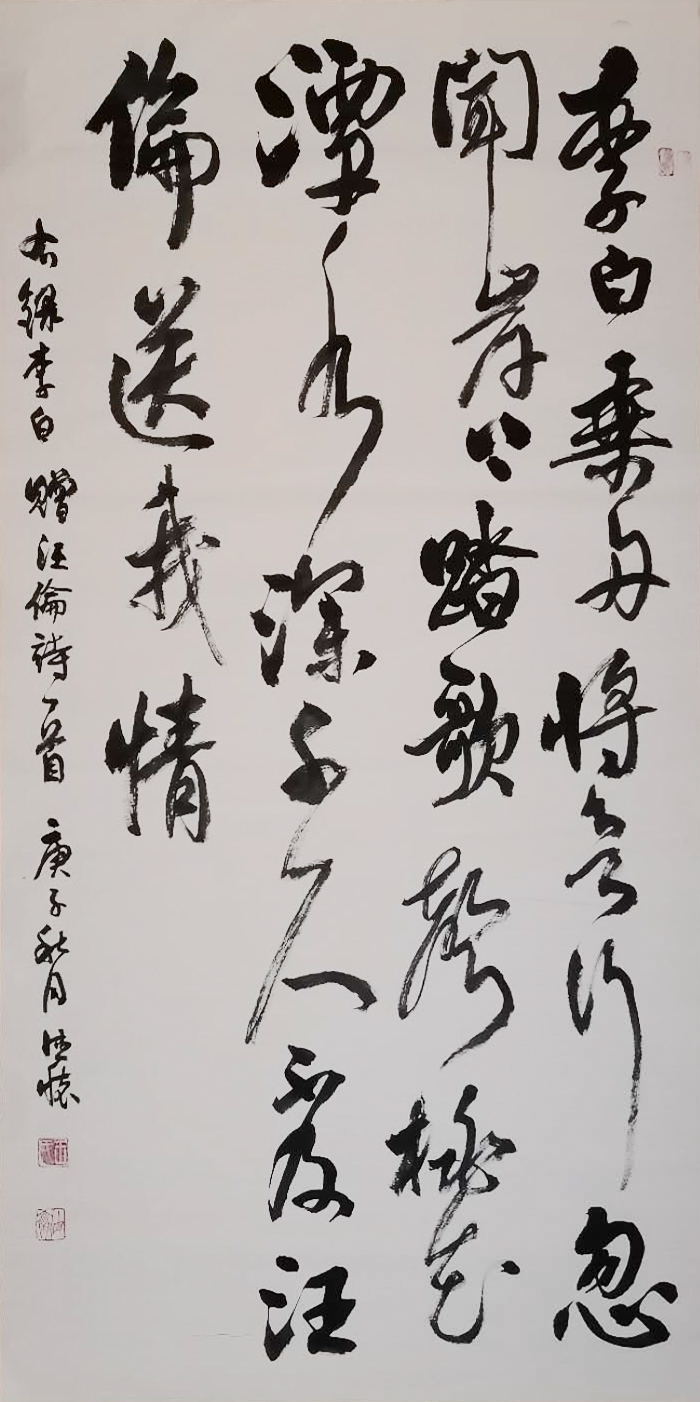 李白乘舟將欲行忽
聞岸上踏歌聲桃花
潭水深千尺不及汪
倫送我情
右錄李白贈汪倫詩一首 庚子秋月